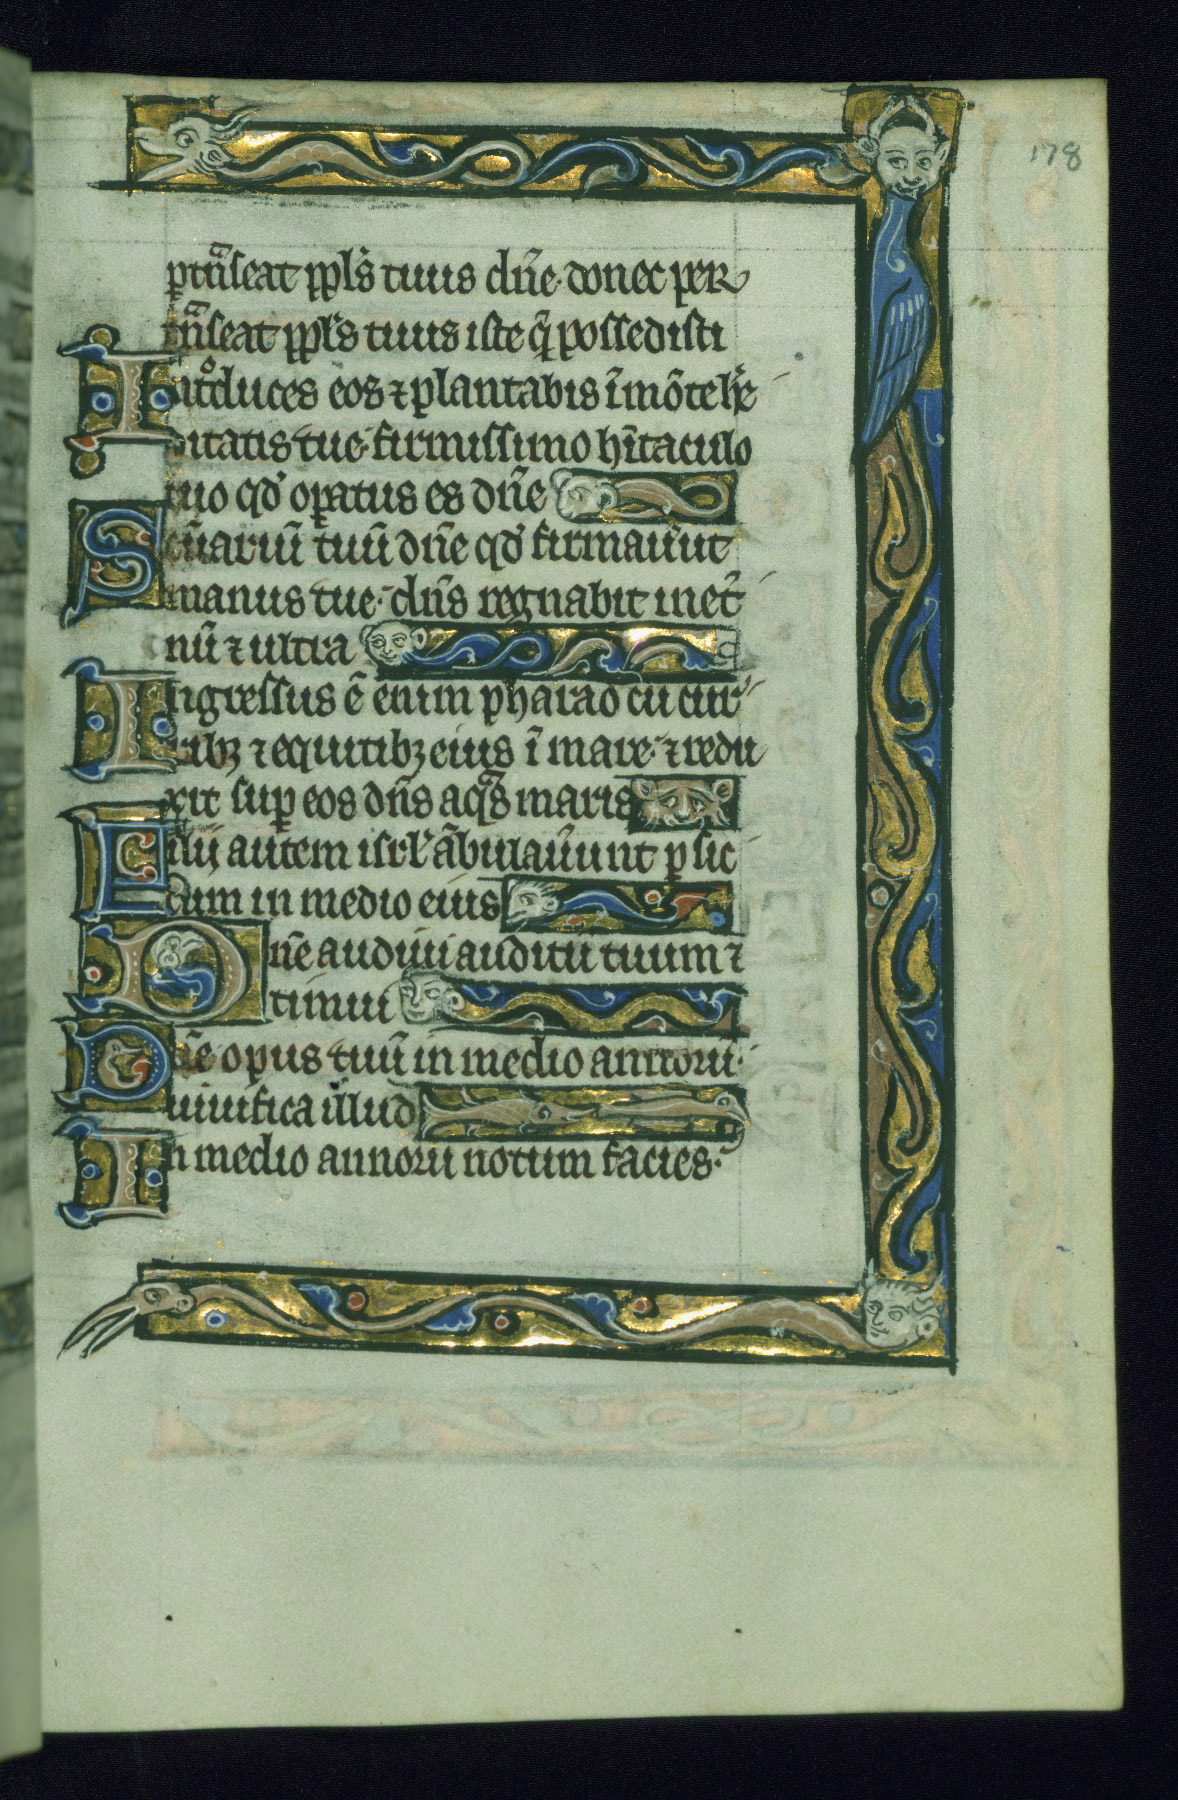 178
ꝑtͣnſeat ppl̄s tuus dn̄e. donec per
tͣnſeat ppl̄s tuus iste q̄ possedisti
Intͦduces eos ⁊ plantabis ī mōte he᷒
ditatis tue. firmissimo hītaculo
tuo qd̓ oꝑatus es dn̄e
Scūariū tuū dn̄e qd̓ firmauūt
manus tue. dn̄s regnabit inet̓
nū ⁊ ultra
Ingressus ē enim pharao cū cur᷒
ribꝫ ⁊ equitibꝫ eius ī mare. ⁊ redu
xit suꝑ eos dn̄s aqͣs maris
Filij autem isrl̓ ābulauūnt ꝑ sic
cum in medio eius
Dn̄e audiui auditū tuum ⁊
timui
Dn̄e opus tuū in medio annorū.
uiuifica illud
In medio annorū notum facies.